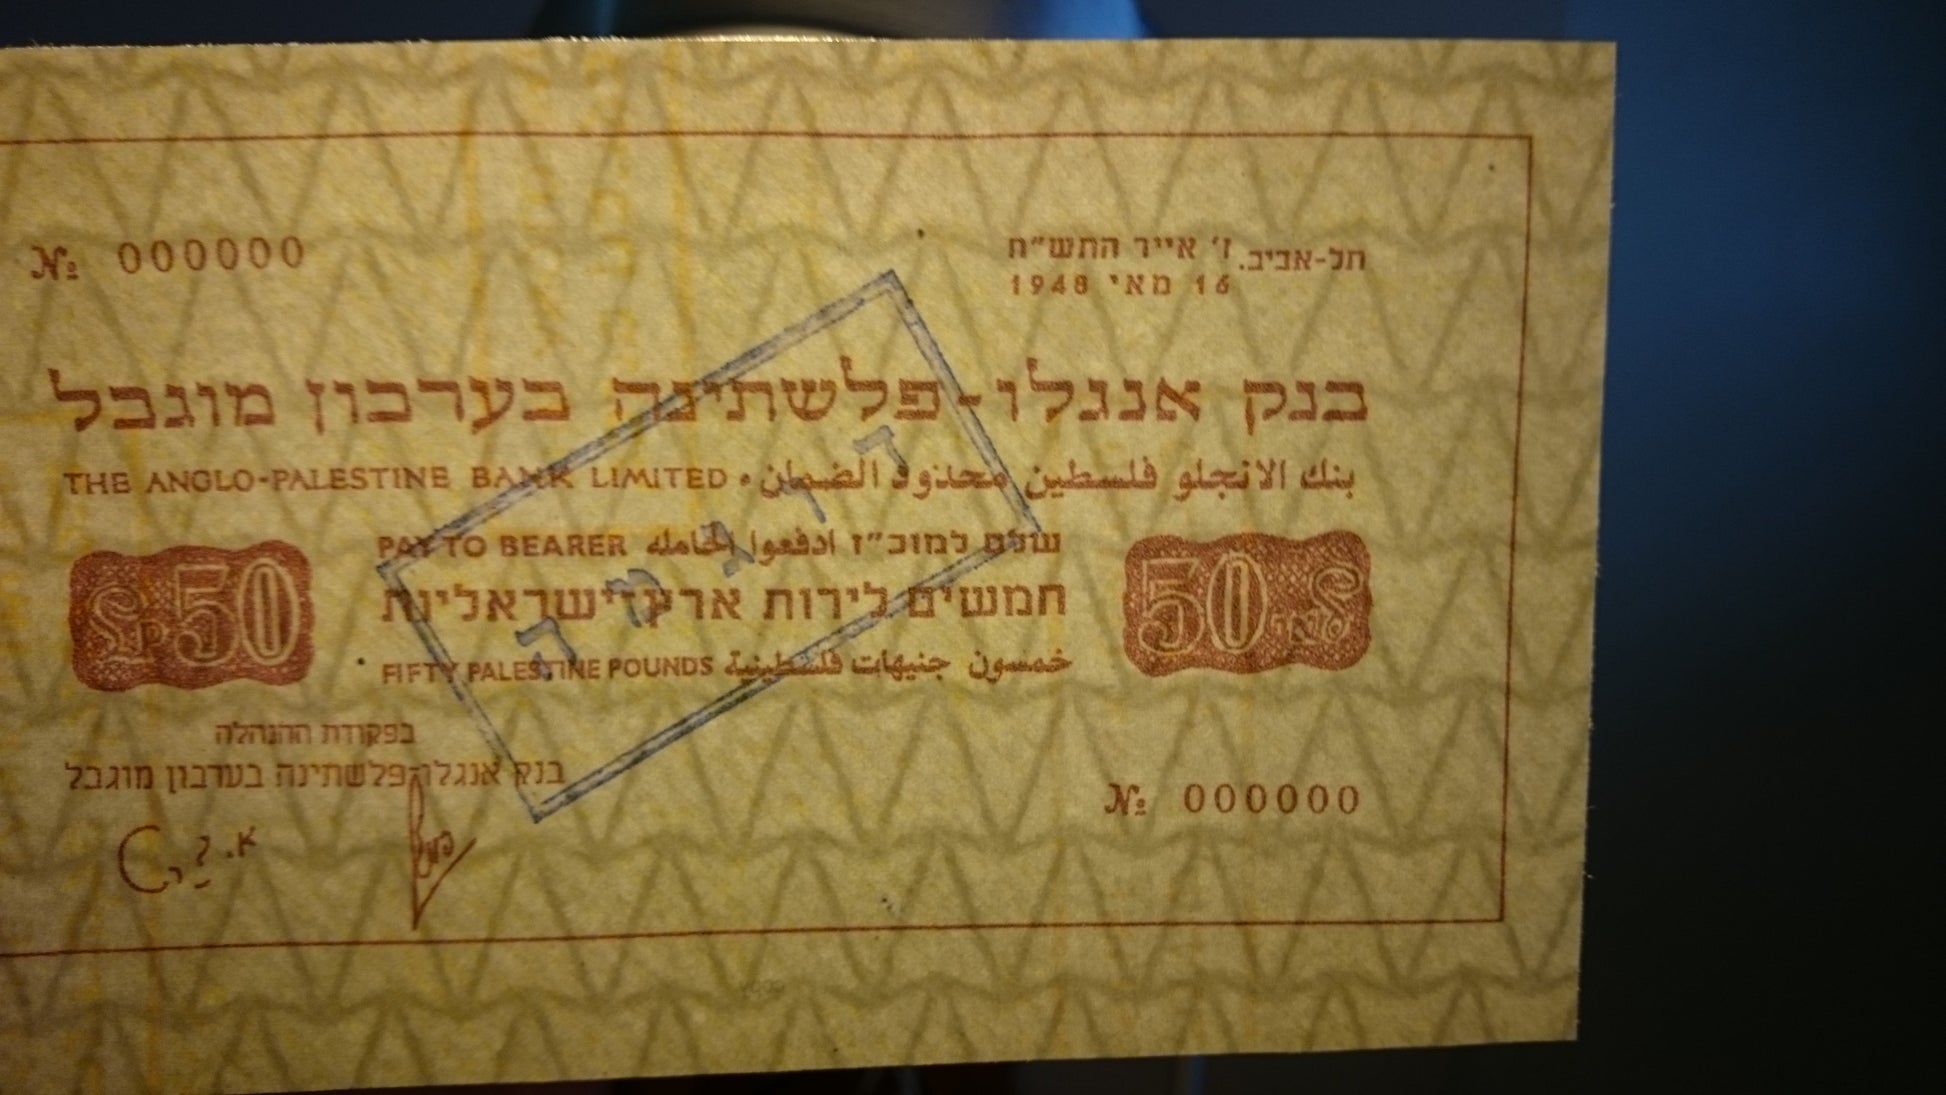 № 000000
תל-אביב. ז' אייר התש"ח
16 מאי 1948
בנק אנגלו-פלשתינה בערבון מוגבל
THE ANGLO-PALESTINE BANK LIMITED • بنك الانجلو فلسطين محدود الضمان
PAY TO BEARER ادفعوا لحامله שלם למוכ"ז
חמשים לירות ארץ-ישראליות
FIFTY PALESTINE POUNDS خمسون جنيهات فلسطينية
£P50
50 לא"י
דוגמה
בפקודת ההנהלה
בנק אנגלו-פלשתינה בערבון מוגבל
№ 000000